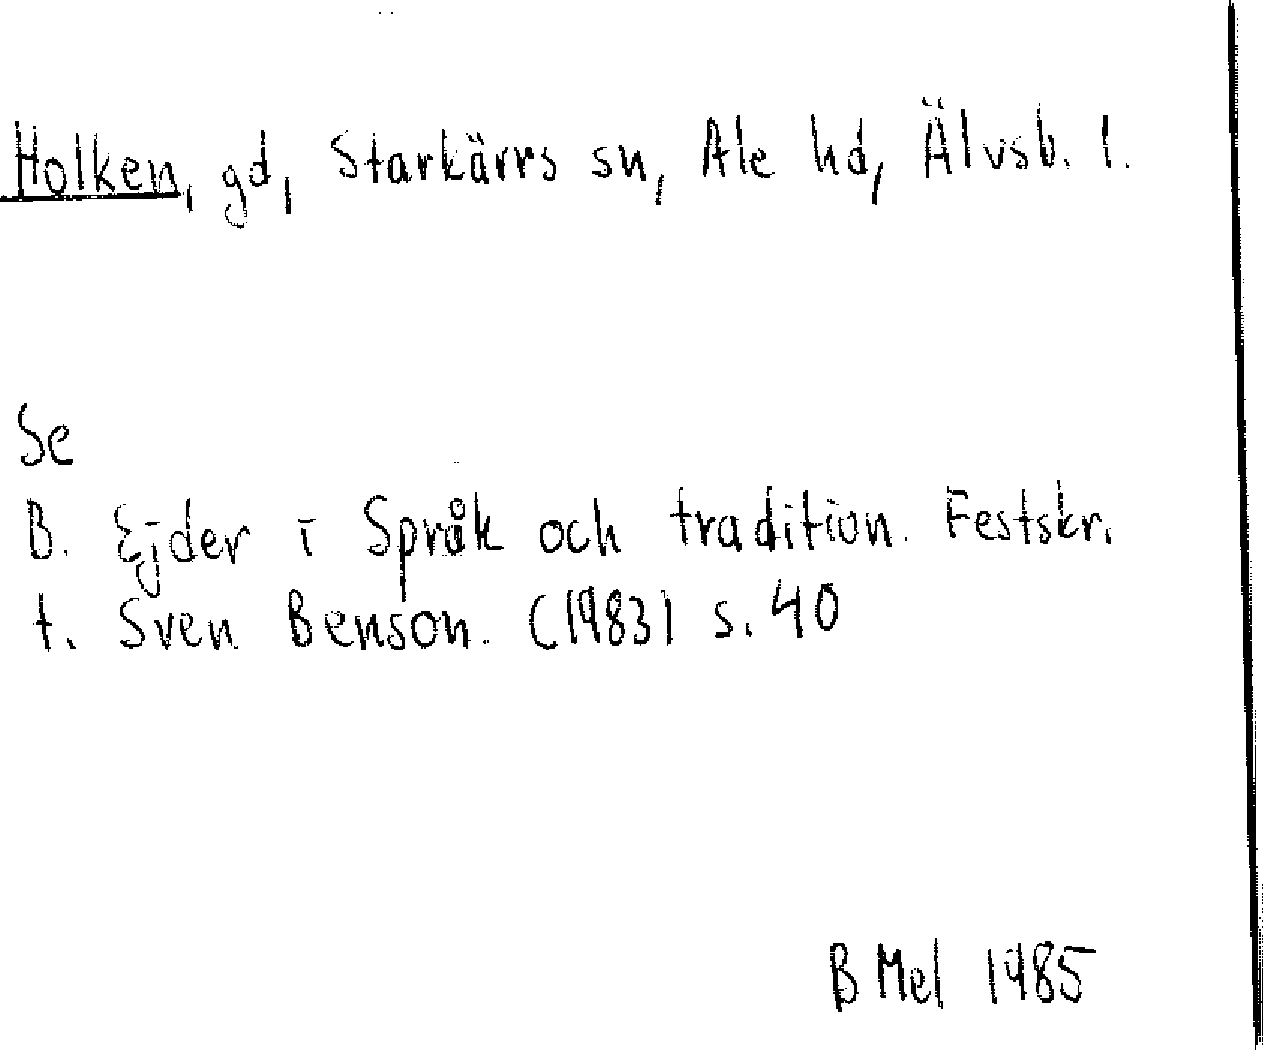 Holken, gd, Starkärrs sn, Ale hd, Älvsb. l.
Se
B. Ejder i Språk och tradition. Festskr.
t. Sven Benson. (1983) s. 40
B Mel 1985